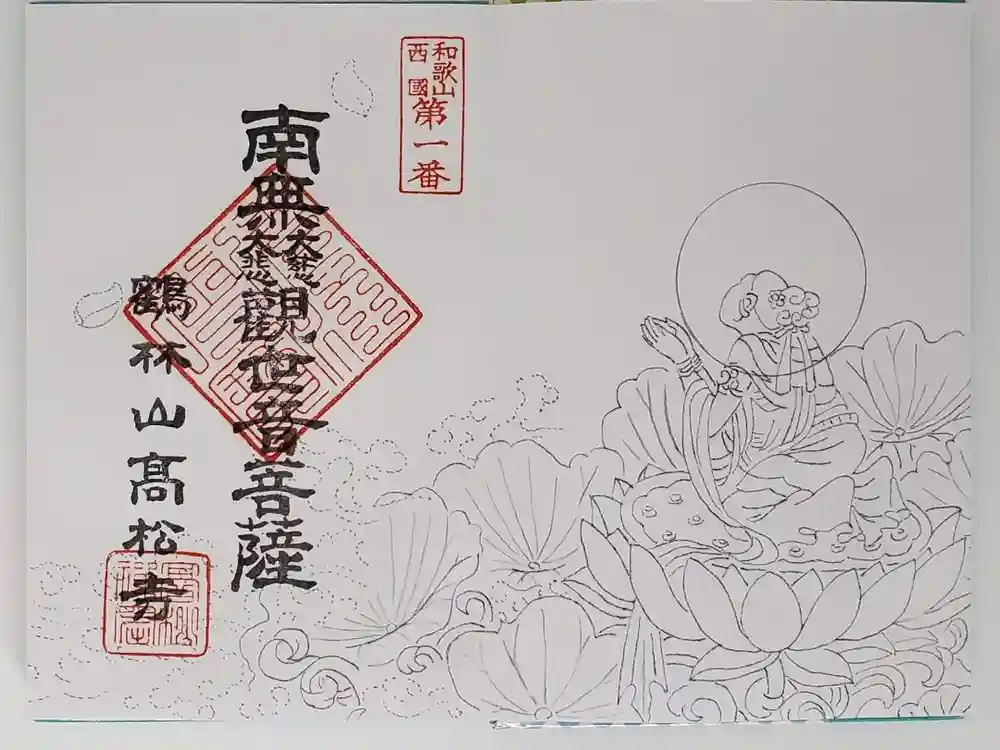 和歌山
西國
第一番
南無大慈大悲觀世音菩薩
鶴林山高松寺